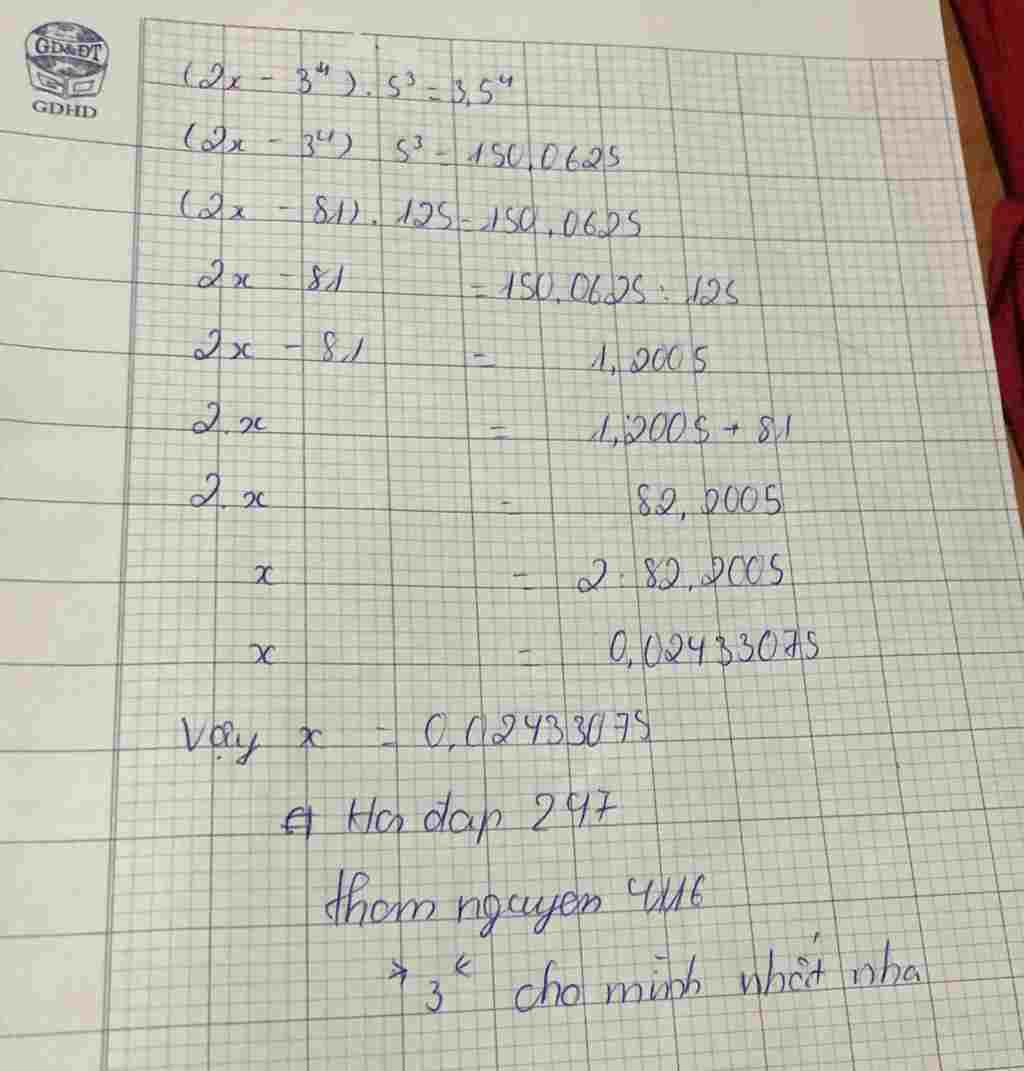 GD&ĐT
GDHD
(2x - 3⁴). 5³ = 3,5⁴
(2x - 3⁴) 5³ = 150,0625
(2x - 81). 125 = 150,0625
2x - 81 = 150,0625 : 125
2x - 81 = 1,2005
2.x = 1,2005 + 81
2.x = 82,2005
x = 2 : 82,2005
x = 0,02433075
Vậy x = 0,02433075
Hoi dap 247
thom nguyen 4116
> 3 < cho mình nhất nha